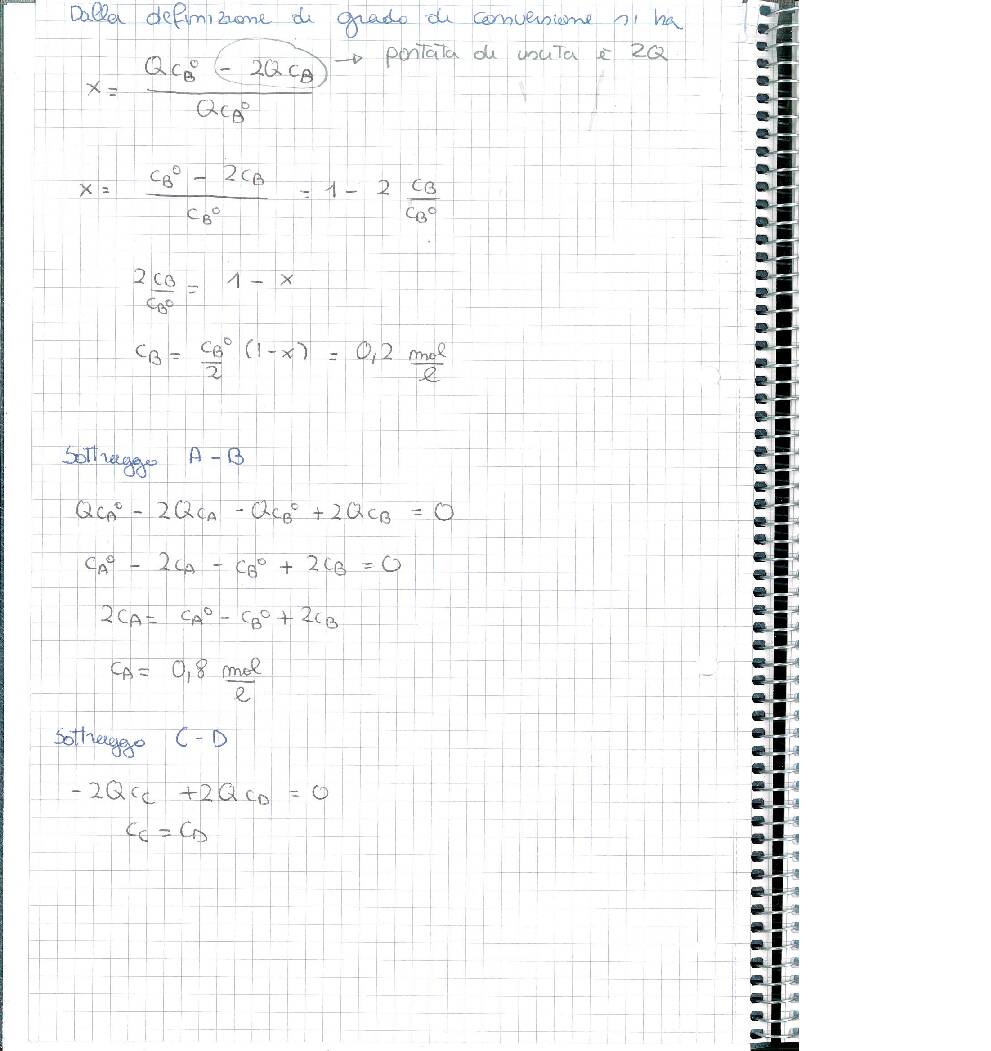 Dalla definizione di grado di conversione si ha
x = (Qc_B° - 2Qc_B) / Qc_B° → portata di uscita è 2Q
x = (c_B° - 2c_B) / c_B° = 1 - 2 c_B / c_B°
2c_B / c_B° = 1 - x
c_B = c_B° / 2 (1-x) = 0,2 mol / l
Sottraggo A - B
Qc_A° - 2Qc_A - Qc_B° + 2Qc_B = 0
c_A° - 2c_A - c_B° + 2c_B = 0
2c_A = c_A° - c_B° + 2c_B
c_A = 0,8 mol / l
Sottraggo C - D
- 2Qc_C + 2Qc_D = 0
c_C = c_D